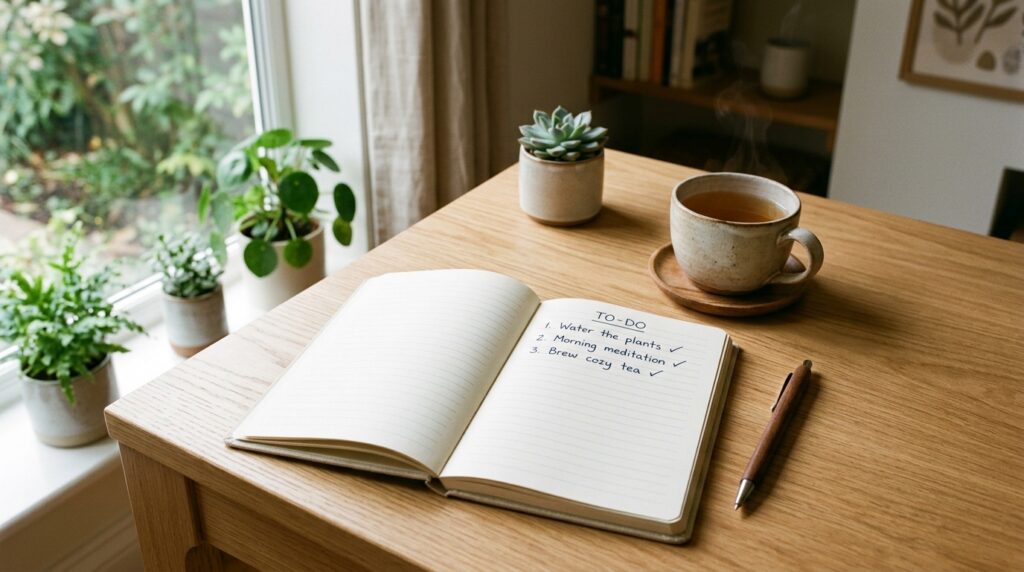 TO-DO
1. Water the plants ✓
2. Morning meditation ✓
3. Brew cozy tea ✓